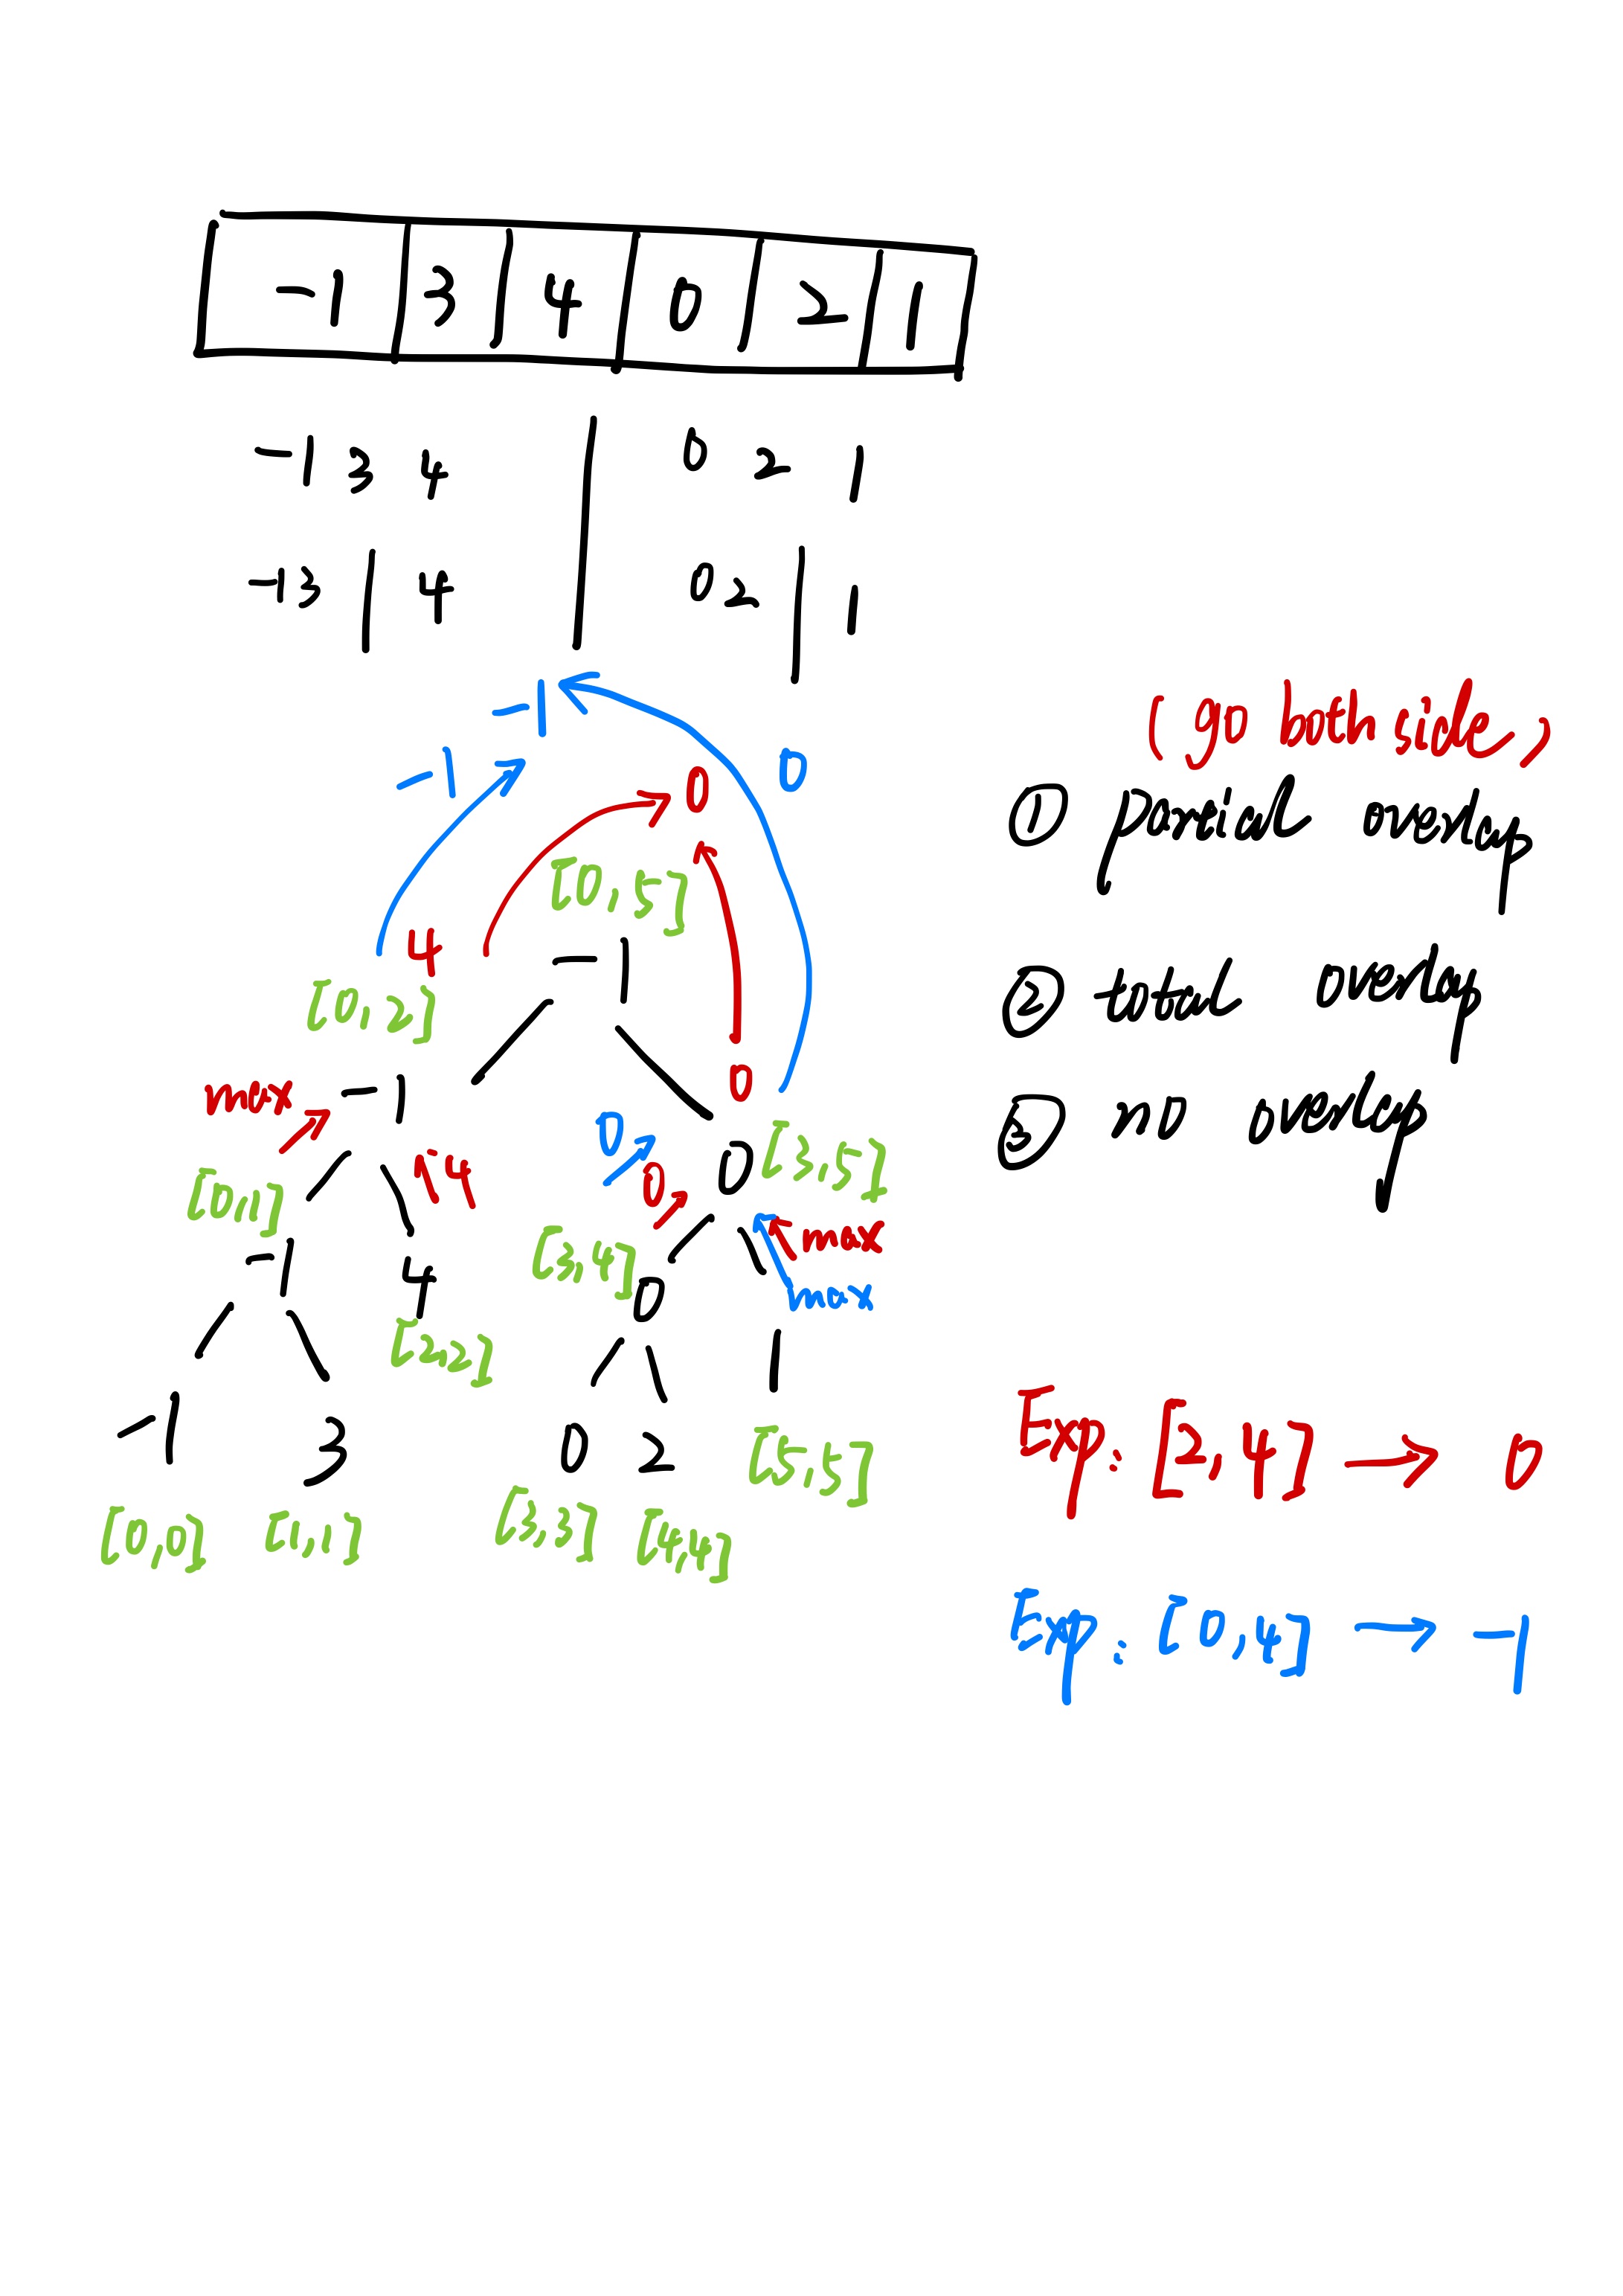 -1 3 4 0 2 1
-1 3 4 0 2 1
-1 3 4 0 2 1
-1
-1 0 0
[0,5]
4 -1
[0,2]
0
max -1
0 0 [3,5]
4 0
[0,1]
[3,4] max
-1 4 0 max
[2,2]
-1 3 0 2 1
[5,5]
[0,0] [1,1] [3,3] [4,4]
(go both side)
① partial overlap
② total overlap
③ no overlap
Exp: [2,4] → 0
Exp: [0,4] → -1